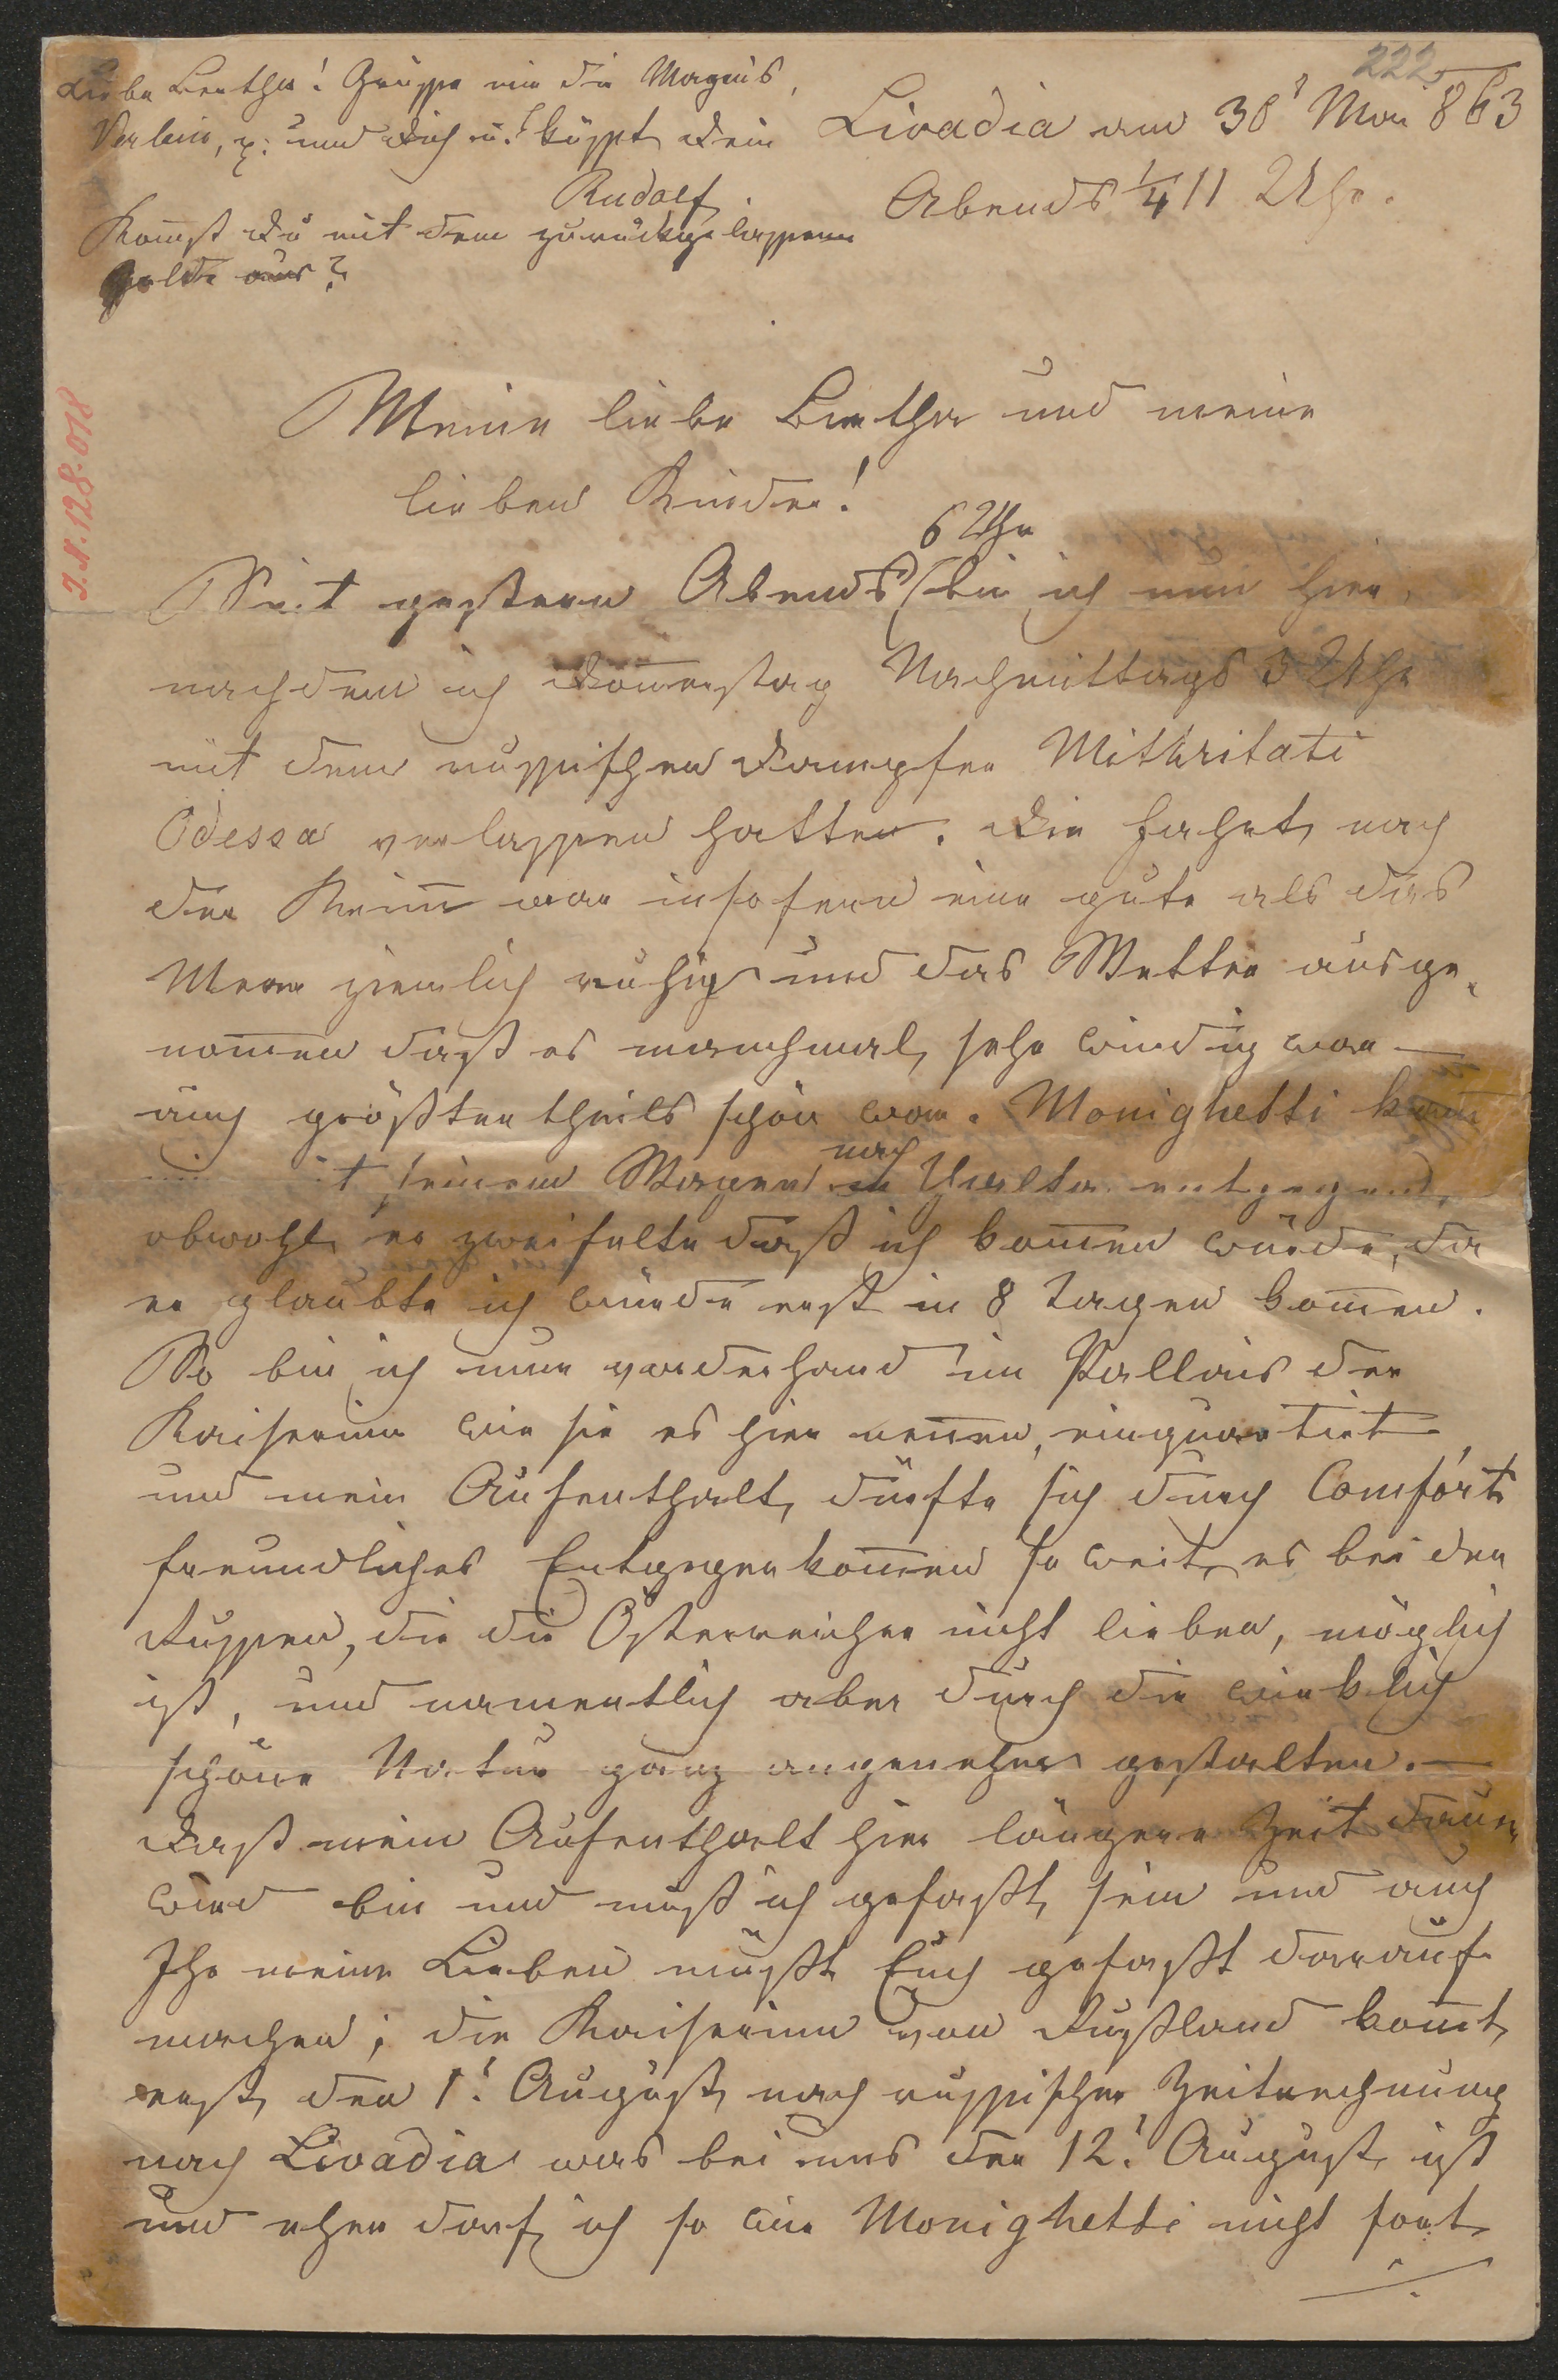 222
Liebe Bertha! Grüsse mir die Magius,
Verlain, p: und Dich u. küsst Dein
Rudolf.
Kommst Du mit dem zurückgelassenen
Gelde aus?
Livadia am 30' Mai 863
Abends ¼ 11 Uhr.
J.N. 128.018
Meine liebe Bertha und meine
lieben Kinder!
6 Uhr
Seit gestern Abends bin ich nun hier,
nachdem ich Donnerstag Nachmittags 3 Uhr
mit dem russischen Dampfer Mithritati
Odessa verlassen hatten. Die Fahrt nach
der Krimm war insofern eine gute als das
Meer ziemlich ruhig und das Wetter ausge-
nommen daß es manchmal sehr windig war —
auch größtentheils schön war. Monighetti kam
mir mit seinem Wagen nach Yalta entgegen,
obwohl er zweifelte daß ich kommen würde, da
er glaubte ich würde erst in 8 Tagen kommen.
So bin ich nun vorderhand im Pallais der
Kaiserinn wie sie es hier nennen, einquartirt
und mein Aufenthalt dürfte sich durch Comfort
freundliches Entgegenkommen so weit es bei den
Russen, die die Österreicher nicht lieben, möglich
ist, und namentlich aber durch die wirklich
schöne Natur ganz angenehm gestalten. —
Daß mein Aufenthalt hier längere Zeit dauern
wird bin und muß ich gefaßt sein und auch
Ihr meine Lieben müßt Euch gefaßt darauf
machen; die Kaiserinn von Rußland kommt
erst den 1! August nach russischer Zeitrechnung
nach Livadia was bei uns der 12! August ist
und eher darf ich so wie Monighetti nicht fort
./.